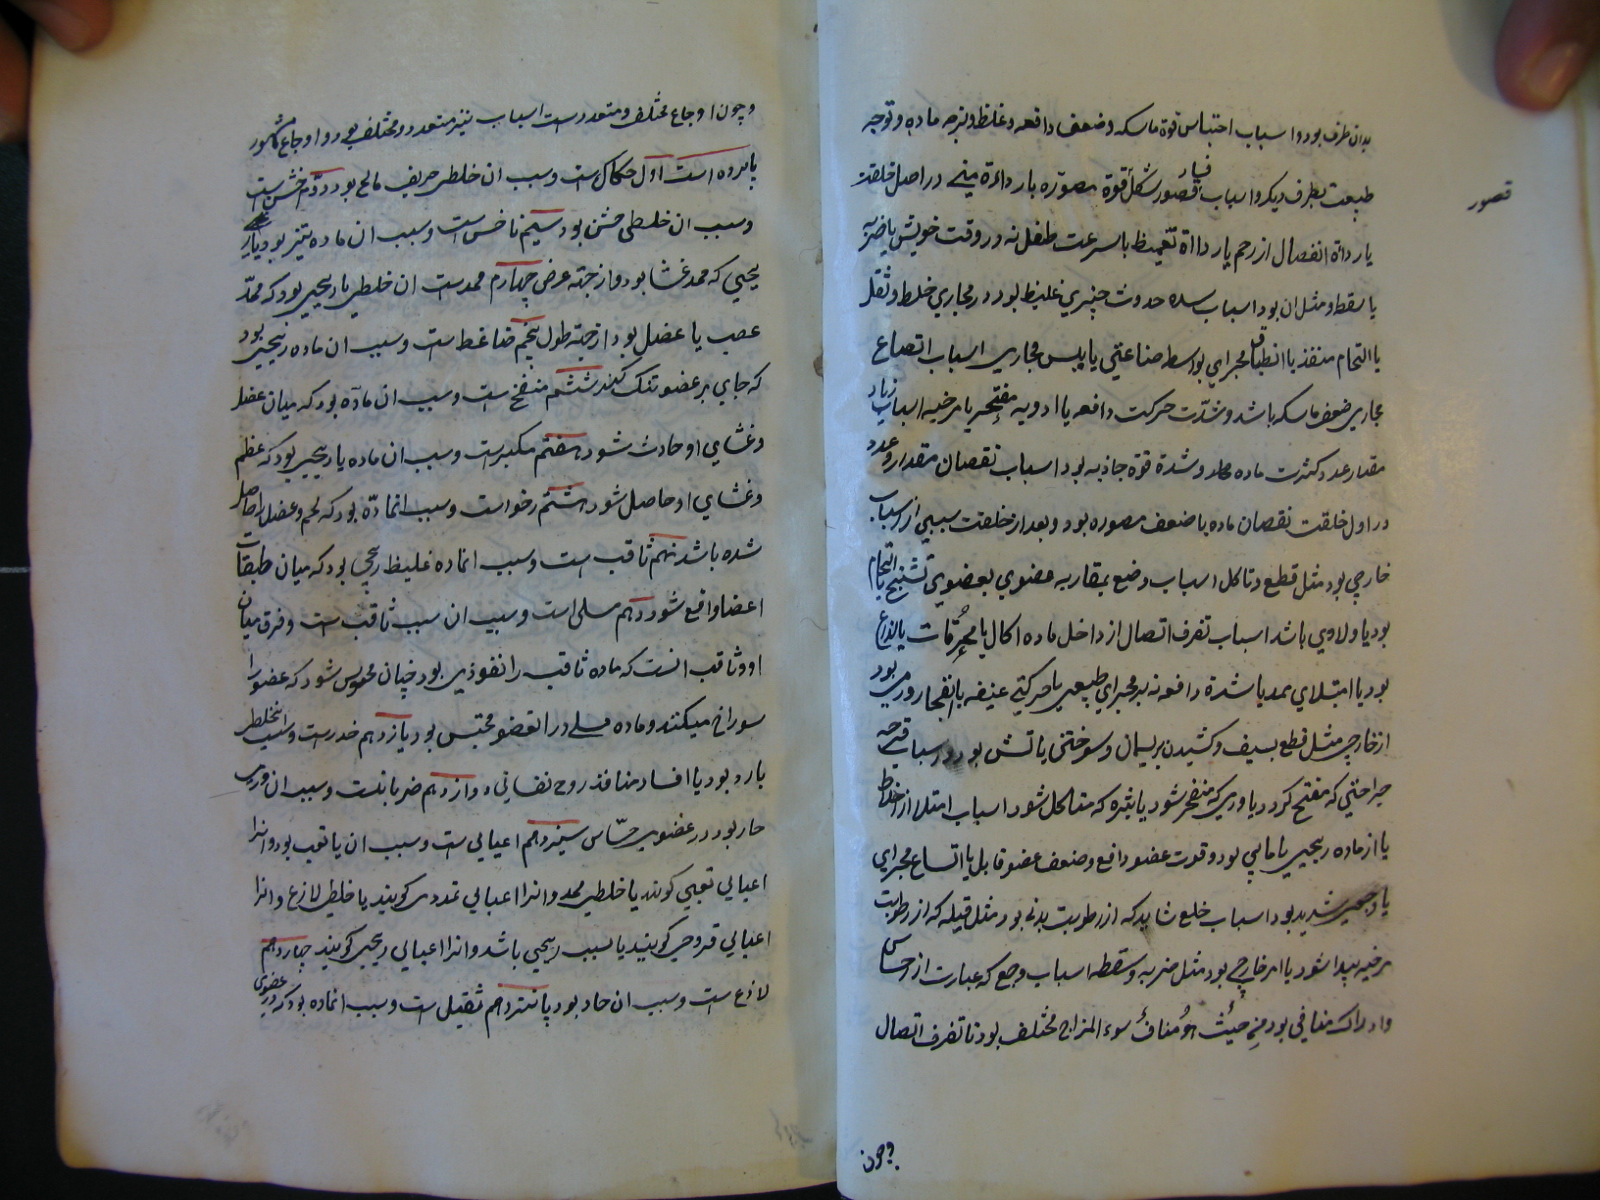 بدان طرف بود و اسباب احتباس قوة ماسکه و ضعف دافعه و غلظ و لزجه ماده و توجه
طبیعت بطرف دیکر و اسباب فساد قصور شکل قوة مصوره یا رداءة منی در اصل خلقت
قصور
یا رداءة انفصال از رحم یا رداءة تقمیط با سرعت طفل نه در وقت خویش یا ضربه
یا سقطه و مثل ان بود اسباب سده حدوث چیزی غلیظ بود در مجاری خلط و ثقل
یا التحام منفذ یا انطباق مجرای بواسطه صناعتی یا یبس مجاری اسباب اتساع
مجاری ضعف ماسکه باشد و شدت حرکت دافعه یا ادویه مفتحه یا مرخیه اسباب زیاد
مقدار عدد کثرت ماده و شدة قوة جاذبه بود اسباب نقصان مقدار و عدد
در اول خلقت نقصان ماده یا ضعف مصوره بود و بعد از خلقت سببی از اسباب
خارجی بود مثل قطع و تاکل اسباب وضع بمقاربه عضوی بعضوی تشنج یا التحام
بود یا ولادی باشد اسباب تفرق اتصال از داخل ماده اکال یا محرقات یا لذاع
بود یا امتلای ممد یا شدة دافعه نه بر مجرای طبیعی یا حرکتی عنیفه یا انفجار ورمی بود
از خارج مثل قطع بسیف و کشیدن بریسمان و سوختن باتش بود و اسباب قرحه
جراحتی که مفتح کردد یا ورمی که منفجر شود یا بثره که متاکل شود اسباب امتلا از اخلاط
یا از ماده ریحی یا مایی بود و قوت عضو دافع و ضعف عضو قابل یا اتساع مجرای
یا شدید بود اسباب خلع شاید که از رطوبت بدنه بود مثل قیله که از رطوبت
مرخیه پیدا شود یا امر خارجی بود مثل ضربه و سقطه اسباب وجع که عبارت از احساس
و ادراک منافی بود من حیث هو مناف سوء المزاج مختلف بود تا تفرق اتصال
و چون
و چون اوجاع مختلف و متعدد است اسباب نیز متعدد و مختلف بود و اوجاع مشهور
پانزده است اول حکاک است و سبب ان خلطی حریف مالح بود دوم خشن است
و سبب ان خلطی خشن بود سیم ناخس است و سبب ان ماده تیز بود یا
ریحی که ممد غشا بود و از جهة عرض چهارم ممدد است ان خلطی یا ریحی بود که ممد
عصب یا عضل بود از جهة طول پنجم ضاغط است و سبب ان ماده ریحی بود
که جای بر عضو تنک کند ششم منفخ است و سبب ان ماده بود که میان عضل
و غشای او حادث شود هفتم مکسر است و سبب ان ماده یا ریحی بود که عظم
و غشای او حاصل شود هشتم رخو است و سبب انماده بود که لحم و عضل را حاصل
شده باشد نهم ثاقب است و سبب انماده غلیظ ریحی بود که میان طبقات
اعضا واقع شود دهم مسلی است و سبب ان سبب ثاقب است و فرق میان
او و ثاقب انست که ماده ثاقب را نفوذی بود چنان محسوس شود که عضو را
سوراخ میکنند و ماده مسلی در انعضو محتبس بود یازدهم خدر است و سبب انخلط
بارد بود یا افساد منافذ روح نفسانی دوازدهم ضربانست و سبب ان ورمی
حار بود در عضوی حساس سیزدهم اعیایی است و سبب ان یا تعب بود و انرا
اعیایی تعبی کویند یا خلطی ممدد و انرا اعیایی تمددی کویند یا خلطی لاذع و انرا
اعیایی قروحی کویند یا بسبب ریحی باشد و انرا اعیایی ریحی کویند چهاردهم
لاذع است و سبب ان حاد بود پانزدهم ثقیل است و سبب انماده بود که در عضوی